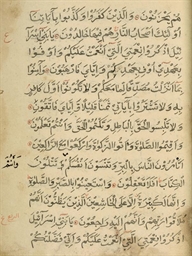 هُمْ يَحْزَنُونَ وَالَّذِينَ كَفَرُوا وَكَذَّبُوا بِآيَاتِنَا
أُولَئِكَ أَصْحَابُ النَّارِ هُمْ فِيهَا خَالِدُونَ يَا بَنِي
إِسْرَائِيلَ اذْكُرُوا نِعْمَتِيَ الَّتِي أَنْعَمْتُ عَلَيْكُمْ وَأَوْفُوا
بِعَهْدِي أُوفِ بِعَهْدِكُمْ وَإِيَّايَ فَارْهَبُونِ وَآمِنُوا
بِمَا أَنْزَلْتُ مُصَدِّقًا لِمَا مَعَكُمْ وَلَا تَكُونُوا أَوَّلَ كَافِرٍ
بِهِ وَلَا تَشْتَرُوا بِآيَاتِي ثَمَنًا قَلِيلًا وَإِيَّايَ فَاتَّقُونِ
وَلَا تَلْبِسُوا الْحَقَّ بِالْبَاطِلِ وَتَكْتُمُوا الْحَقَّ وَأَنْتُمْ تَعْلَمُونَ
وَأَقِيمُوا الصَّلَوةَ وَآتُوا الزَّكَوةَ وَارْكَعُوا مَعَ الرَّاكِعِينَ
أَتَأْمُرُونَ النَّاسَ بِالْبِرِّ وَتَنْسَوْنَ أَنْفُسَكُمْ تَتْلُونَ
وَأَنْتُمْ
الْكِتَابَ أَفَلَا تَعْقِلُونَ وَاسْتَعِينُوا بِالصَّبْرِ وَالصَّلَوةِ
وَإِنَّهَا لَكَبِيرَةٌ إِلَّا عَلَى الْخَاشِعِينَ الَّذِينَ يَظُنُّونَ أَنَّهُمْ
مُلَاقُوا رَبِّهِمْ وَأَنَّهُمْ إِلَيْهِ رَاجِعُونَ يَا بَنِي إِسْرَائِيلَ
اذْكُرُوا نِعْمَتِيَ الَّتِي أَنْعَمْتُ عَلَيْكُمْ وَأَنِّي فَضَّلْتُكُمْ